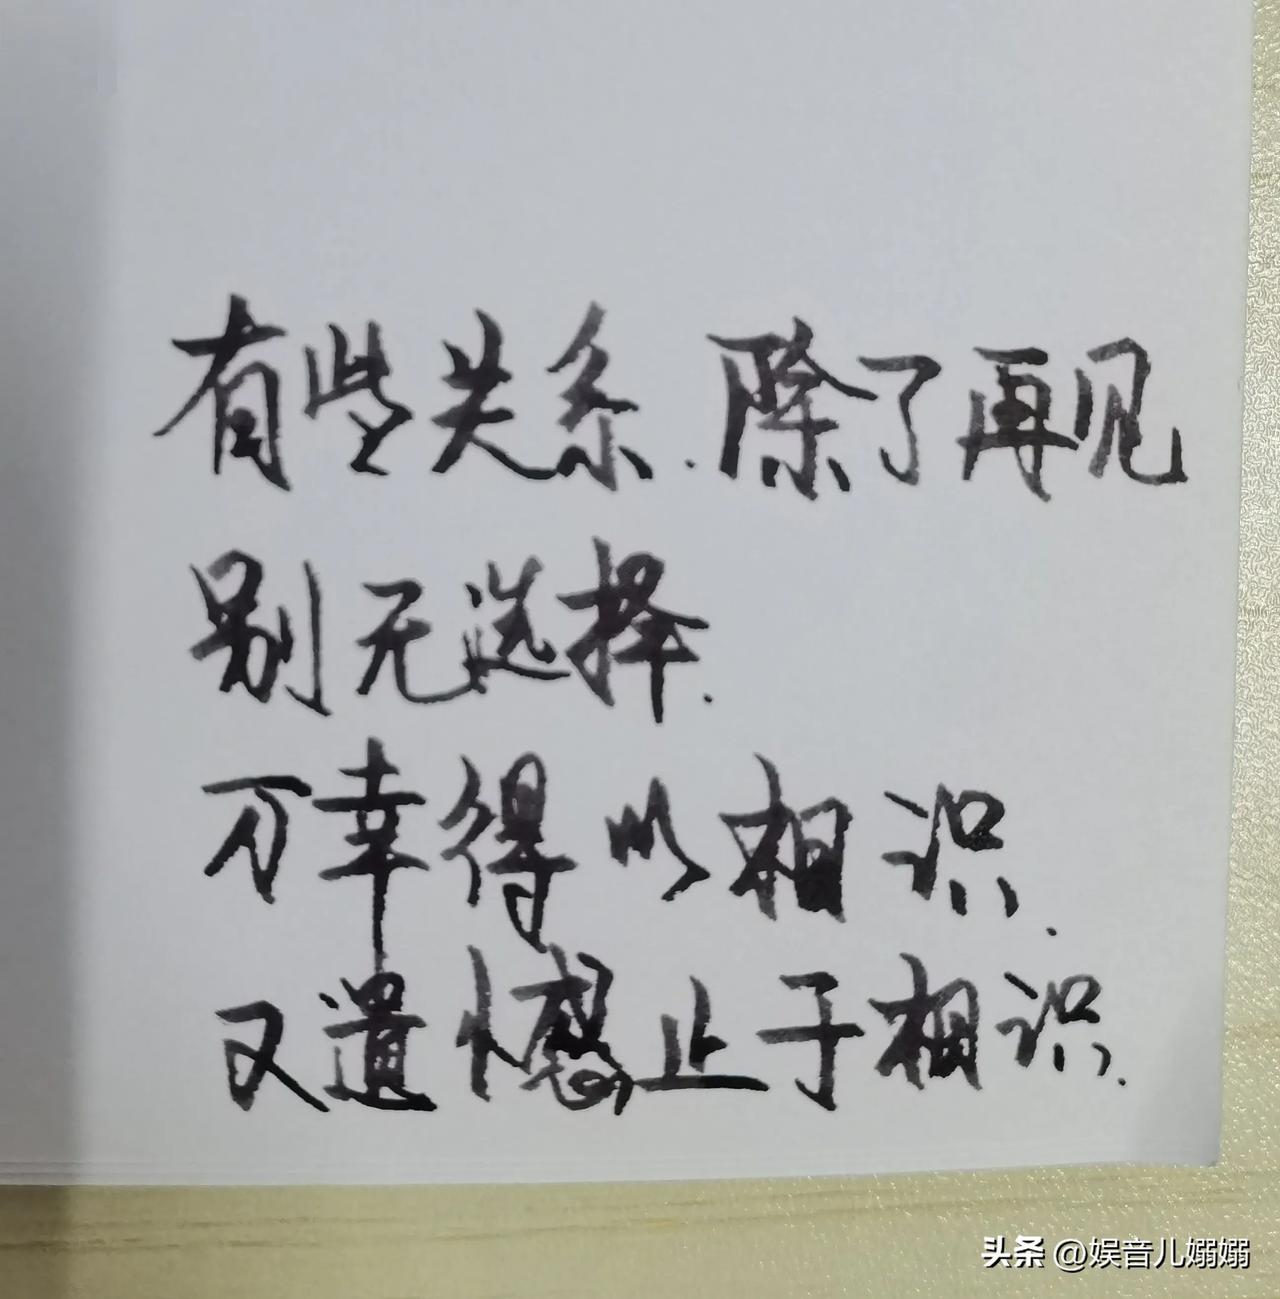 有些关系.除了再见
别无选择.
万幸得以相识.
又遗憾止于相识.
头条 @娱音儿嫋嫋